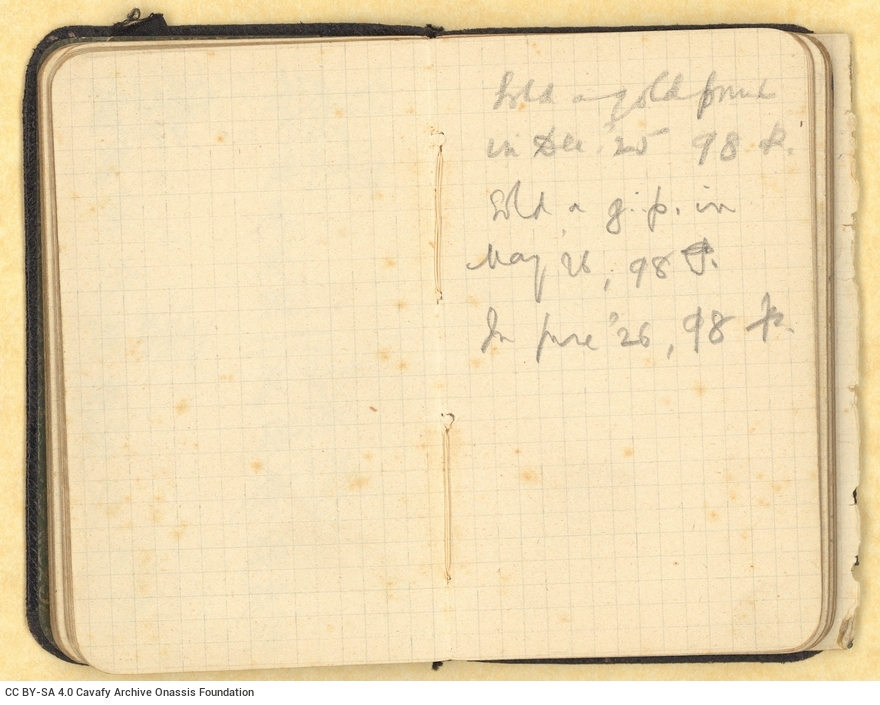 Sold a gold pound
in Dec. '25 98 P.
Sold a g. p. in
May '26, 98 P.
In June '26, 98 P.
CC BY-SA 4.0 Cavafy Archive Onassis Foundation